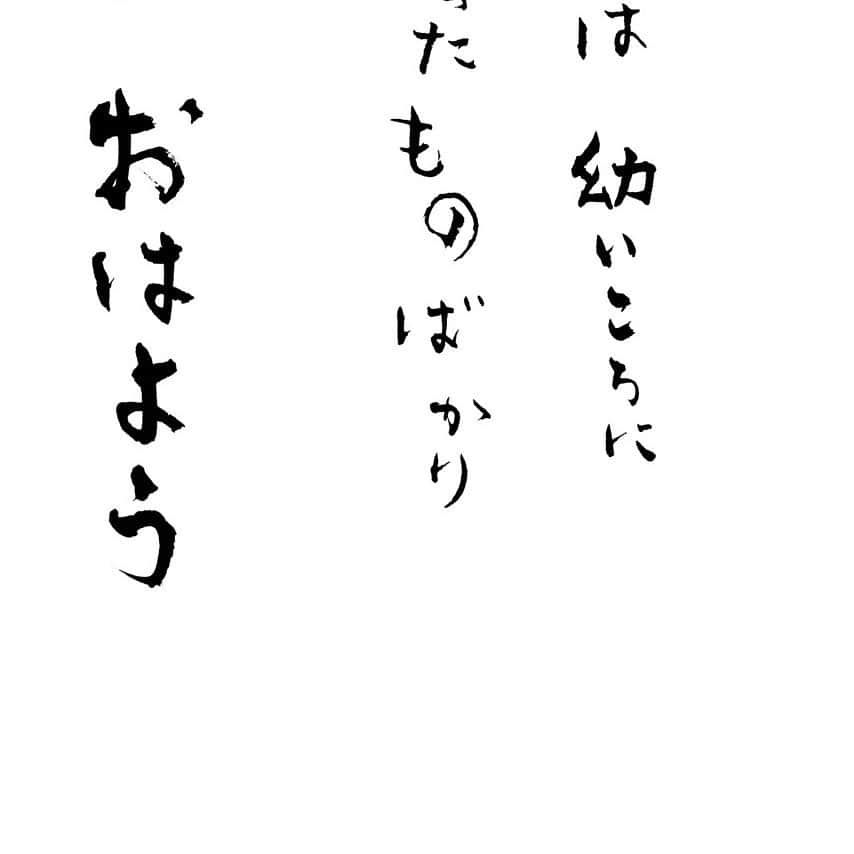 は 幼いころに
たものばかり
おはよう